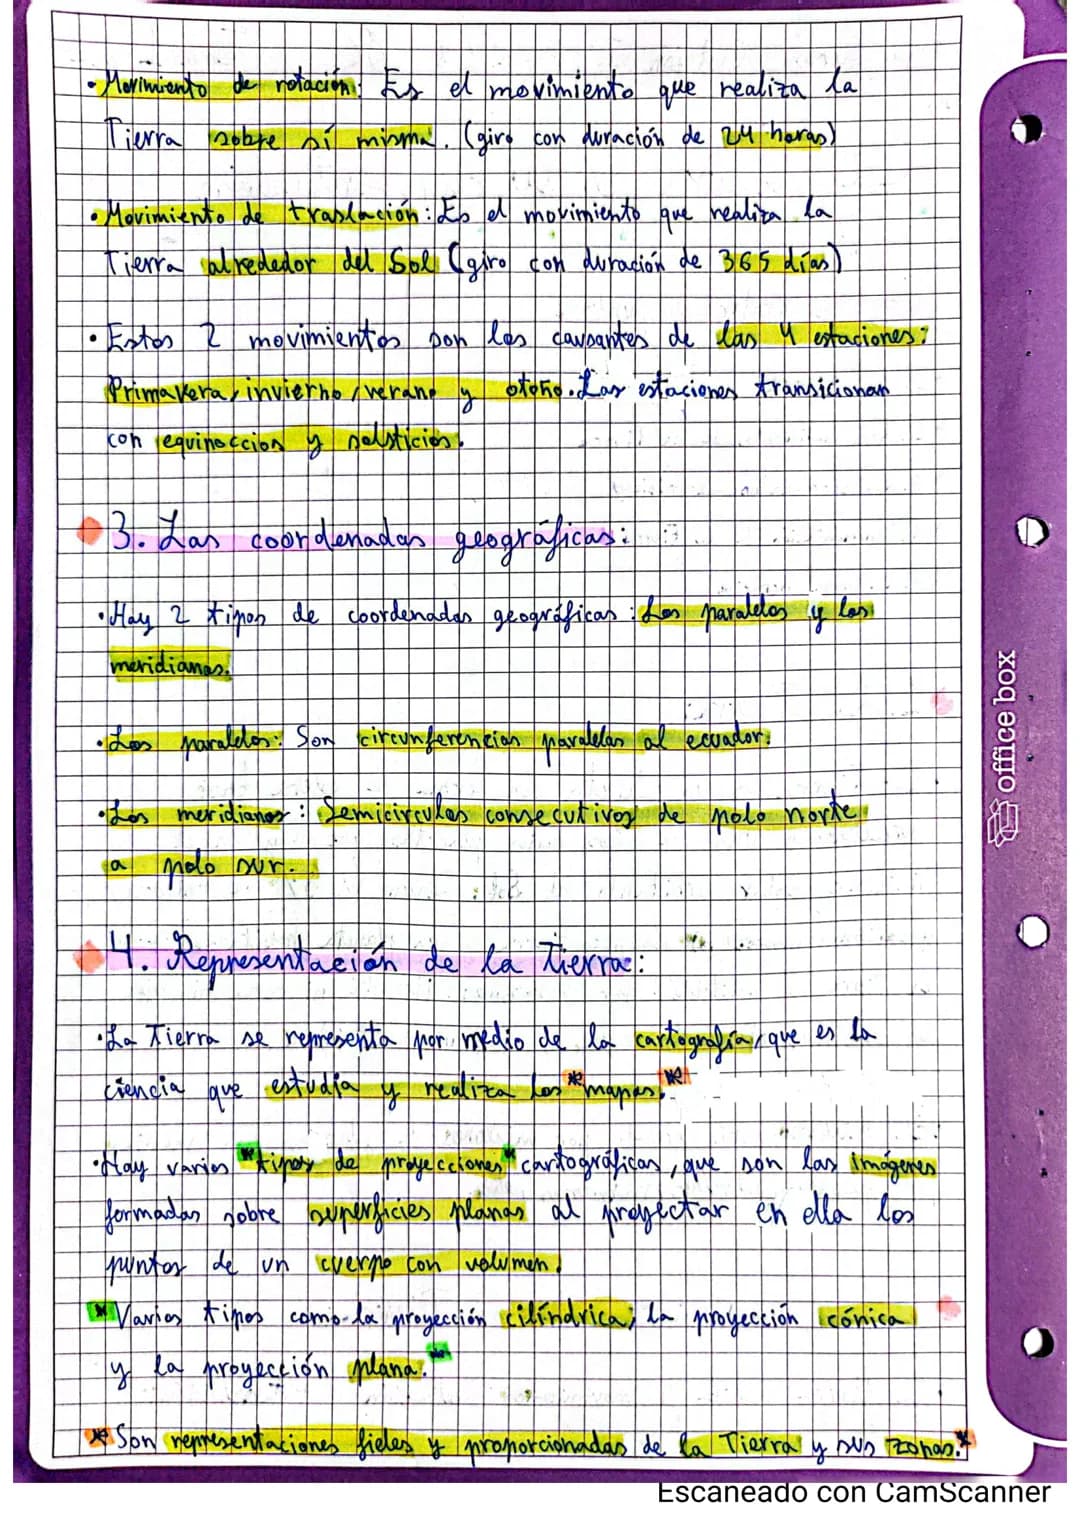 • Movimiento de rotación: Es el movimiento que realiza la
Tierra sobre sí misma. (giro con duración de 24 horas)
• Movimiento de traslación: Es el movimiento que realiza la
Tierra alrededor del Sol (giro con duración de 365 días)
• Estos 2 movimientos son los causantes de las 4 estaciones:
Primavera, invierno, verano y otoño. Las estaciones transicionan
con equinoccios y solsticios.
3. Las coordenadas geográficas:
• Hay 2 tipos de coordenadas geográficas: Los paralelos y los
meridianos.
• Los paralelos: Son circunferencias paralelas al ecuador.
• Los meridianos: Semicirculos consecutivos de polo norte
a polo sur.
4. Representación de la Tierra:
• La Tierra se representa por medio de la cartografía, que es la
ciencia que estudia y realiza los *mapas.*
• Hay varios *tipos de proyecciones* cartográficas, que son las imágenes
formadas sobre superficies planas al proyectar en ella los
puntos de un cuerpo con volumen.
* Varios tipos como la proyección cilíndrica, la proyección cónica
y la proyección plana.*
* Son representaciones fieles y proporcionadas de la Tierra y sus zonas.*
office box
Escaneado con CamScanner